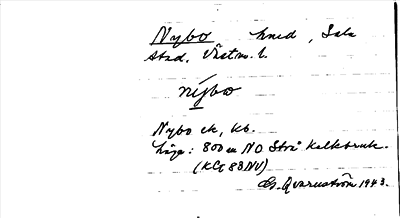 Nybo hned, Sala
stad. Västm. l.
nỳbω
Nybo ek, kb.
Läge: 800 m NO Strå Kalkbruk.
(KG 83NV)
G. Qvarnström 1943.